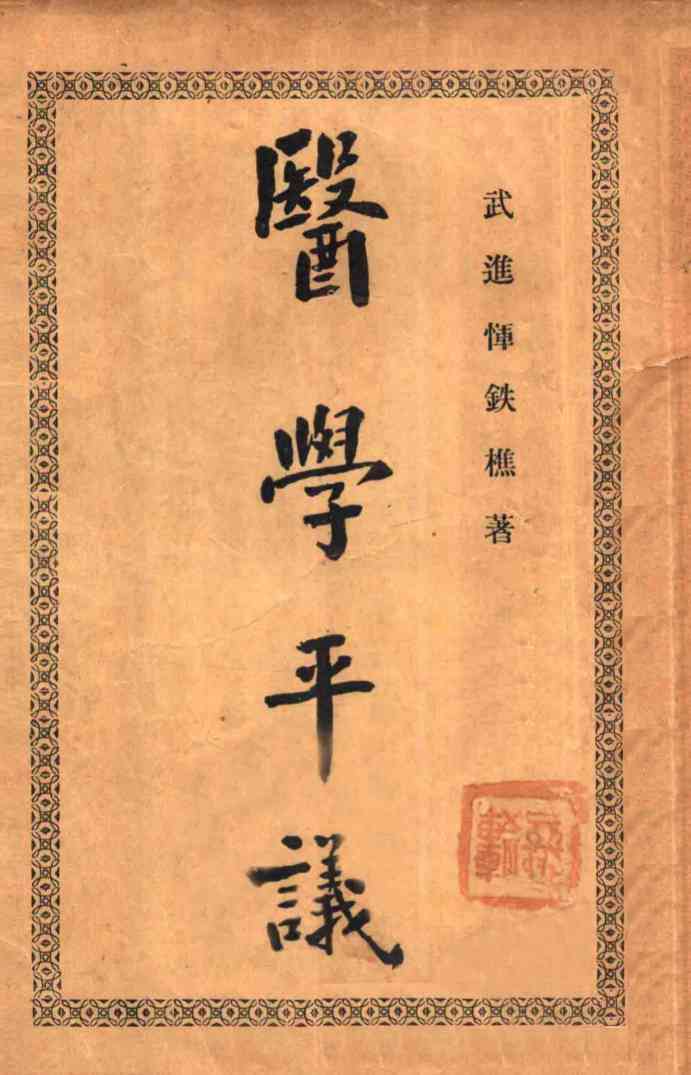 武進惲鉄樵著
醫學平議